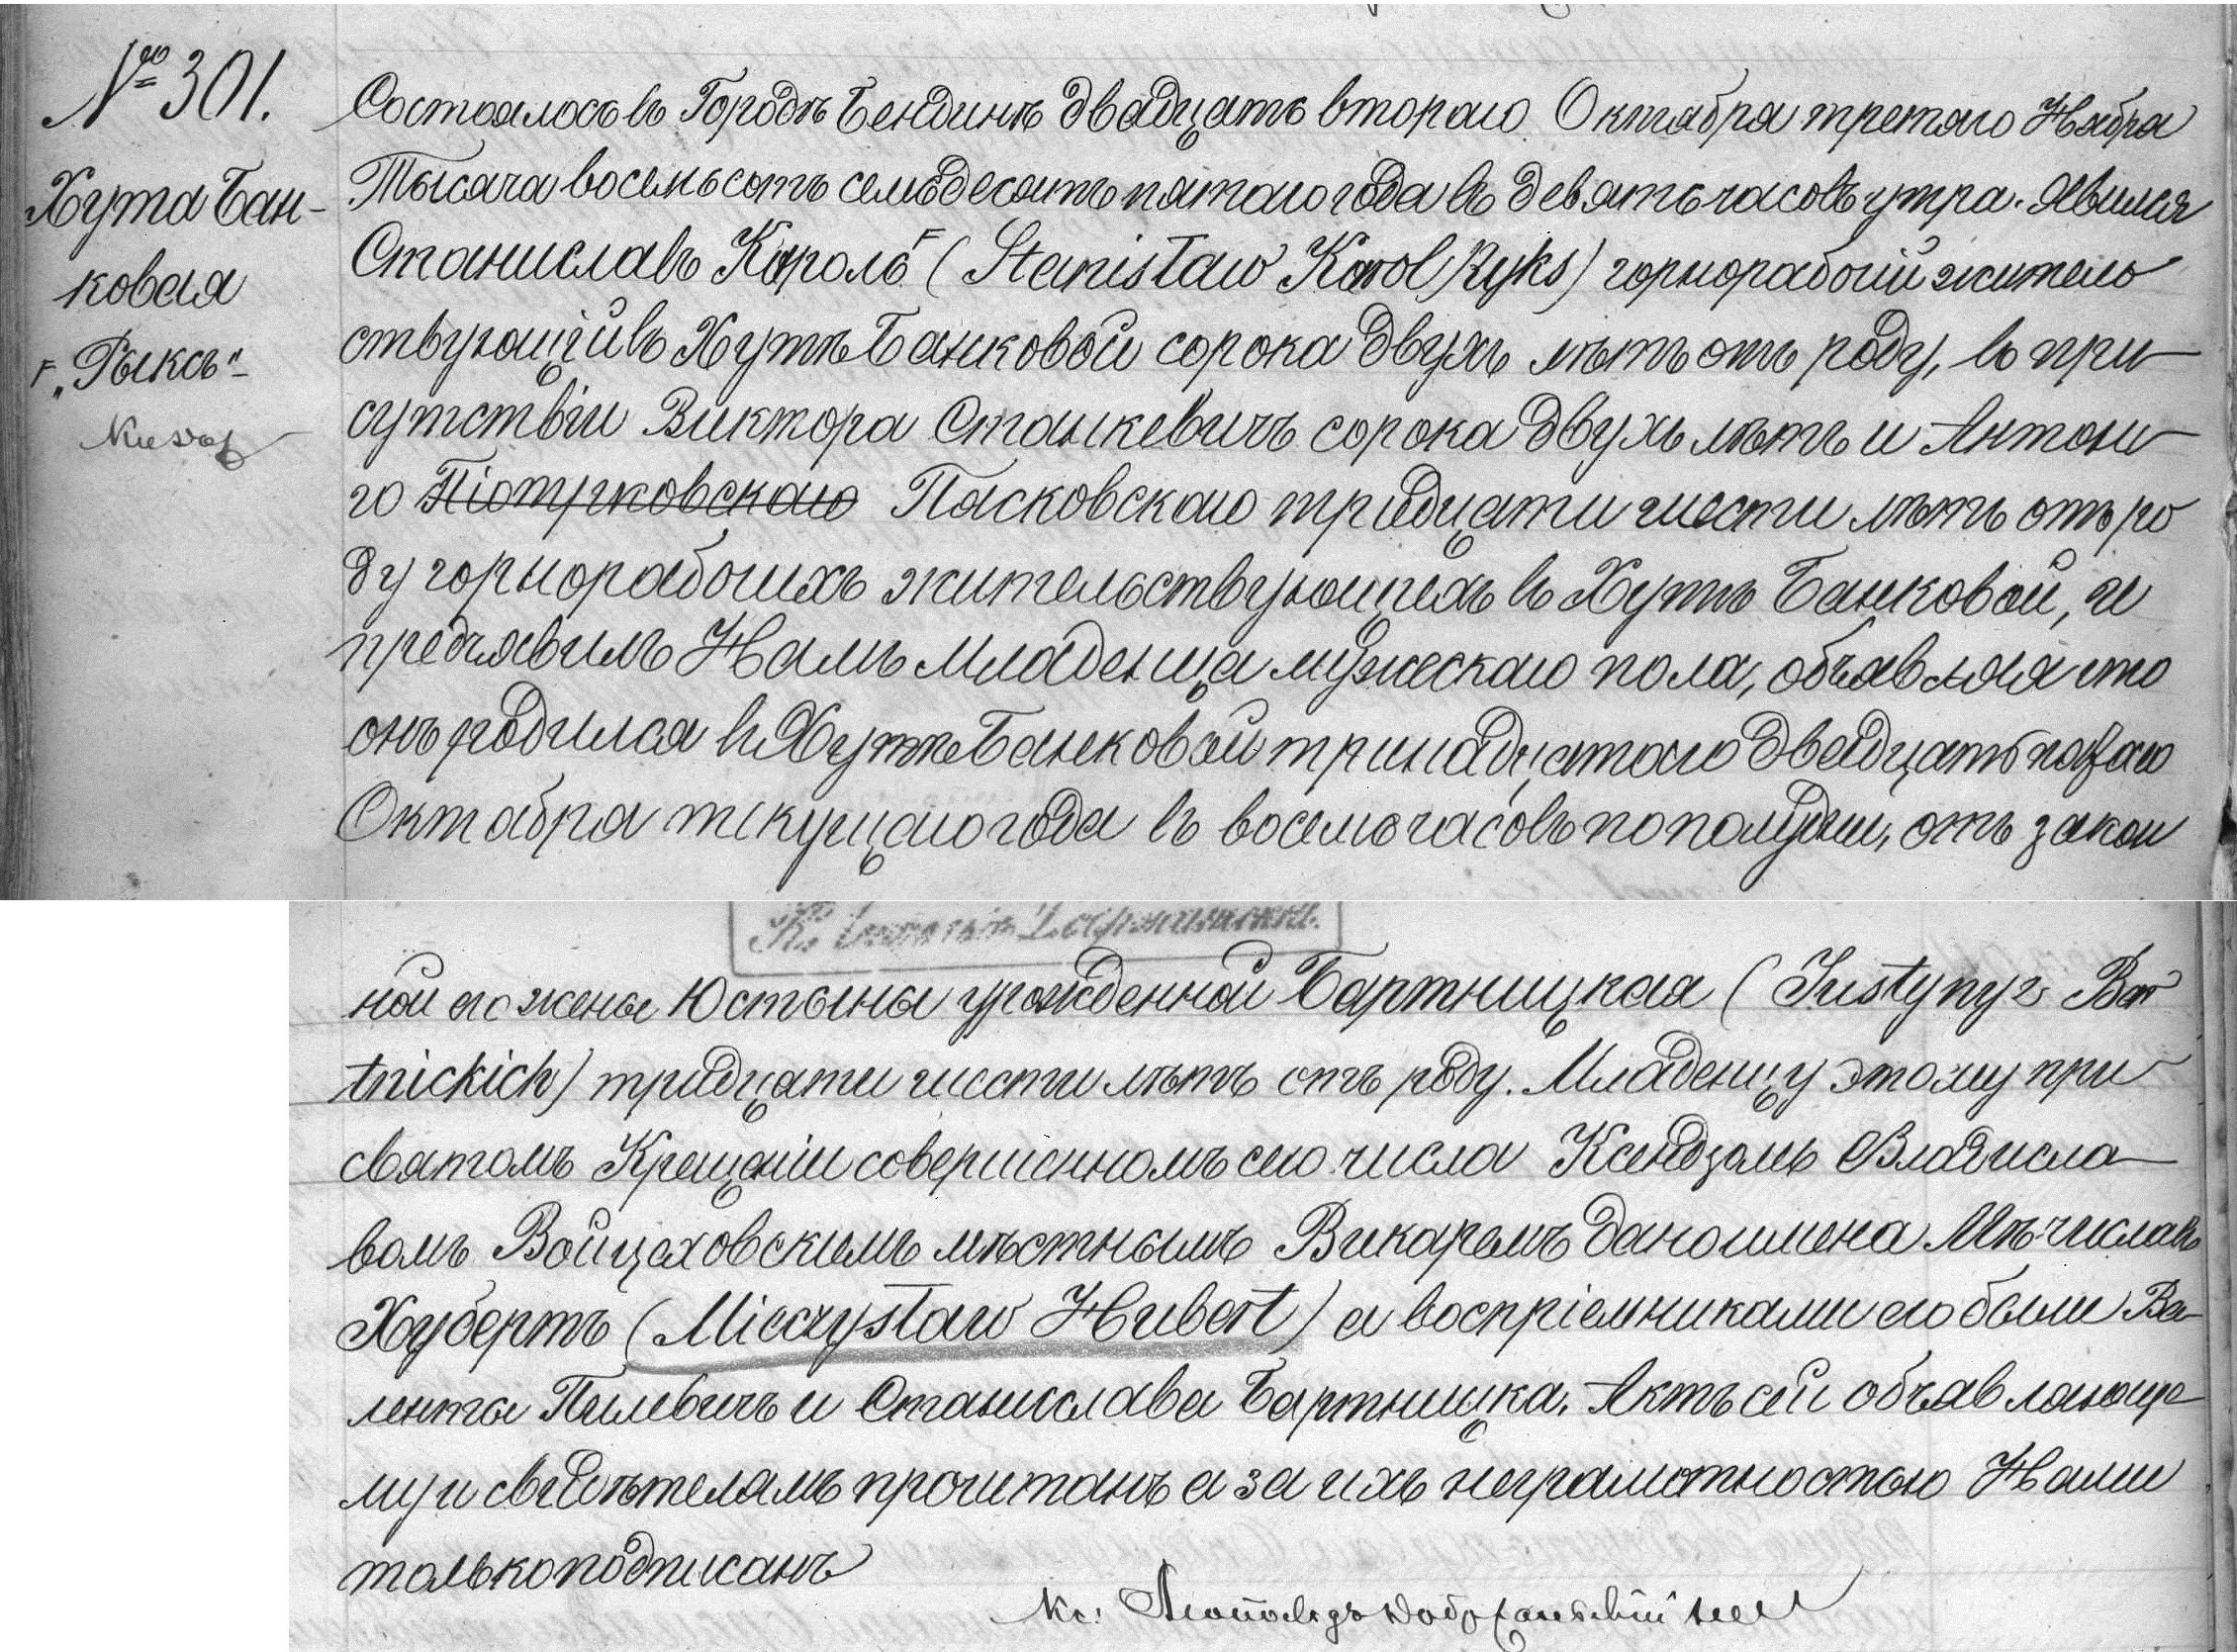 № 301.
Хута Бан-
ковая
F „Рыксъ"
Состоялось въ Городѣ Бендинѣ двадцать втораго Октября третяго Ноября
Тысяча восемьсотъ семьдесятъ пятаго года въ девять часовъ утра. Явился
Станиславъ Кароль F (Stanisław Karol Ryks) горнорабочій житель
ствующій въ Хутѣ Банковой сорока двухъ лѣтъ отъ роду, въ при
сутствіи Виктора Станкевичъ сорока двухъ лѣтъ и Антони
го Піотрковскаго Пясковскаго тридцати шести лѣтъ отъ ро
ду горнорабочихъ жительствующихъ въ Хутѣ Банковой, и
предъявилъ Намъ младенца мужескаго пола, объявляя что
онъ родился въ Хутѣ Банковой тринадцатаго двадцать пятаго
Октября текущаго года въ восемь часовъ пополудни, отъ закон
ной его жены Юстыны урожденной Бартницкая (Justyny z Bar
tnickich) тридцати шести лѣтъ отъ роду. Младенцу этому при
святомъ Крещеніи совершенномъ сего числа Ксендзомъ Владисла
вомъ Войцеховскимъ мѣстнымъ Викаремъ дано имена Мѣчиславъ
Хубертъ (Mieczysław Hubert) а воспріемниками его были Ва-
ленты Пилевичъ и Станислава Бартницка. Актъ сей объявляюще
му и свидѣтелямъ прочитанъ а за ихъ неграмотностью Нами
только подписанъ
Кс: Леопольдъ Добржаньскій